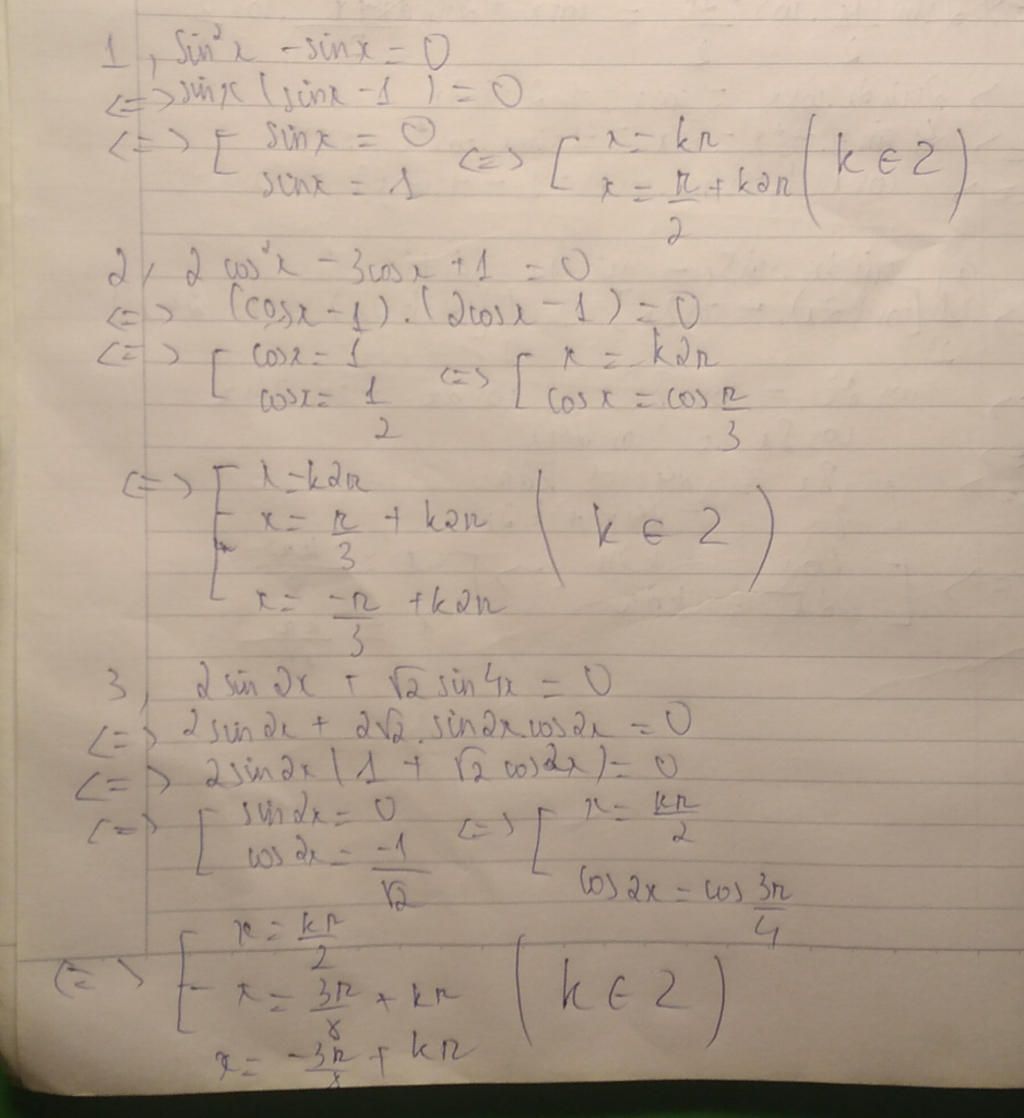 1, sin²x - sinx = 0
<=> sinx (sinx - 1) = 0
<=> [ sinx = 0 <=> [ x = kπ (k ∈ Z)
sinx = 1 x = π/2 + k2π
2, 2 cos²x - 3cosx + 1 = 0
<=> (cosx - 1).(2cosx - 1) = 0
<=> [ cosx = 1 <=> [ x = k2π
cosx = 1/2 cosx = cos π/3
<=> [ x = k2π
x = π/3 + k2π (k ∈ Z)
x = -π/3 + k2π
3, 2 sin 2x + √2 sin 4x = 0
<=> 2 sin 2x + 2√2 . sin2x cos2x = 0
<=> 2 sin2x (1 + √2 cos2x) = 0
<=> [ sin 2x = 0 <=> [ x = kπ/2
cos 2x = -1/√2 cos 2x = cos 3π/4
<=> [ x = kπ/2
x = 3π/8 + kπ (k ∈ Z)
x = -3π/8 + kπ